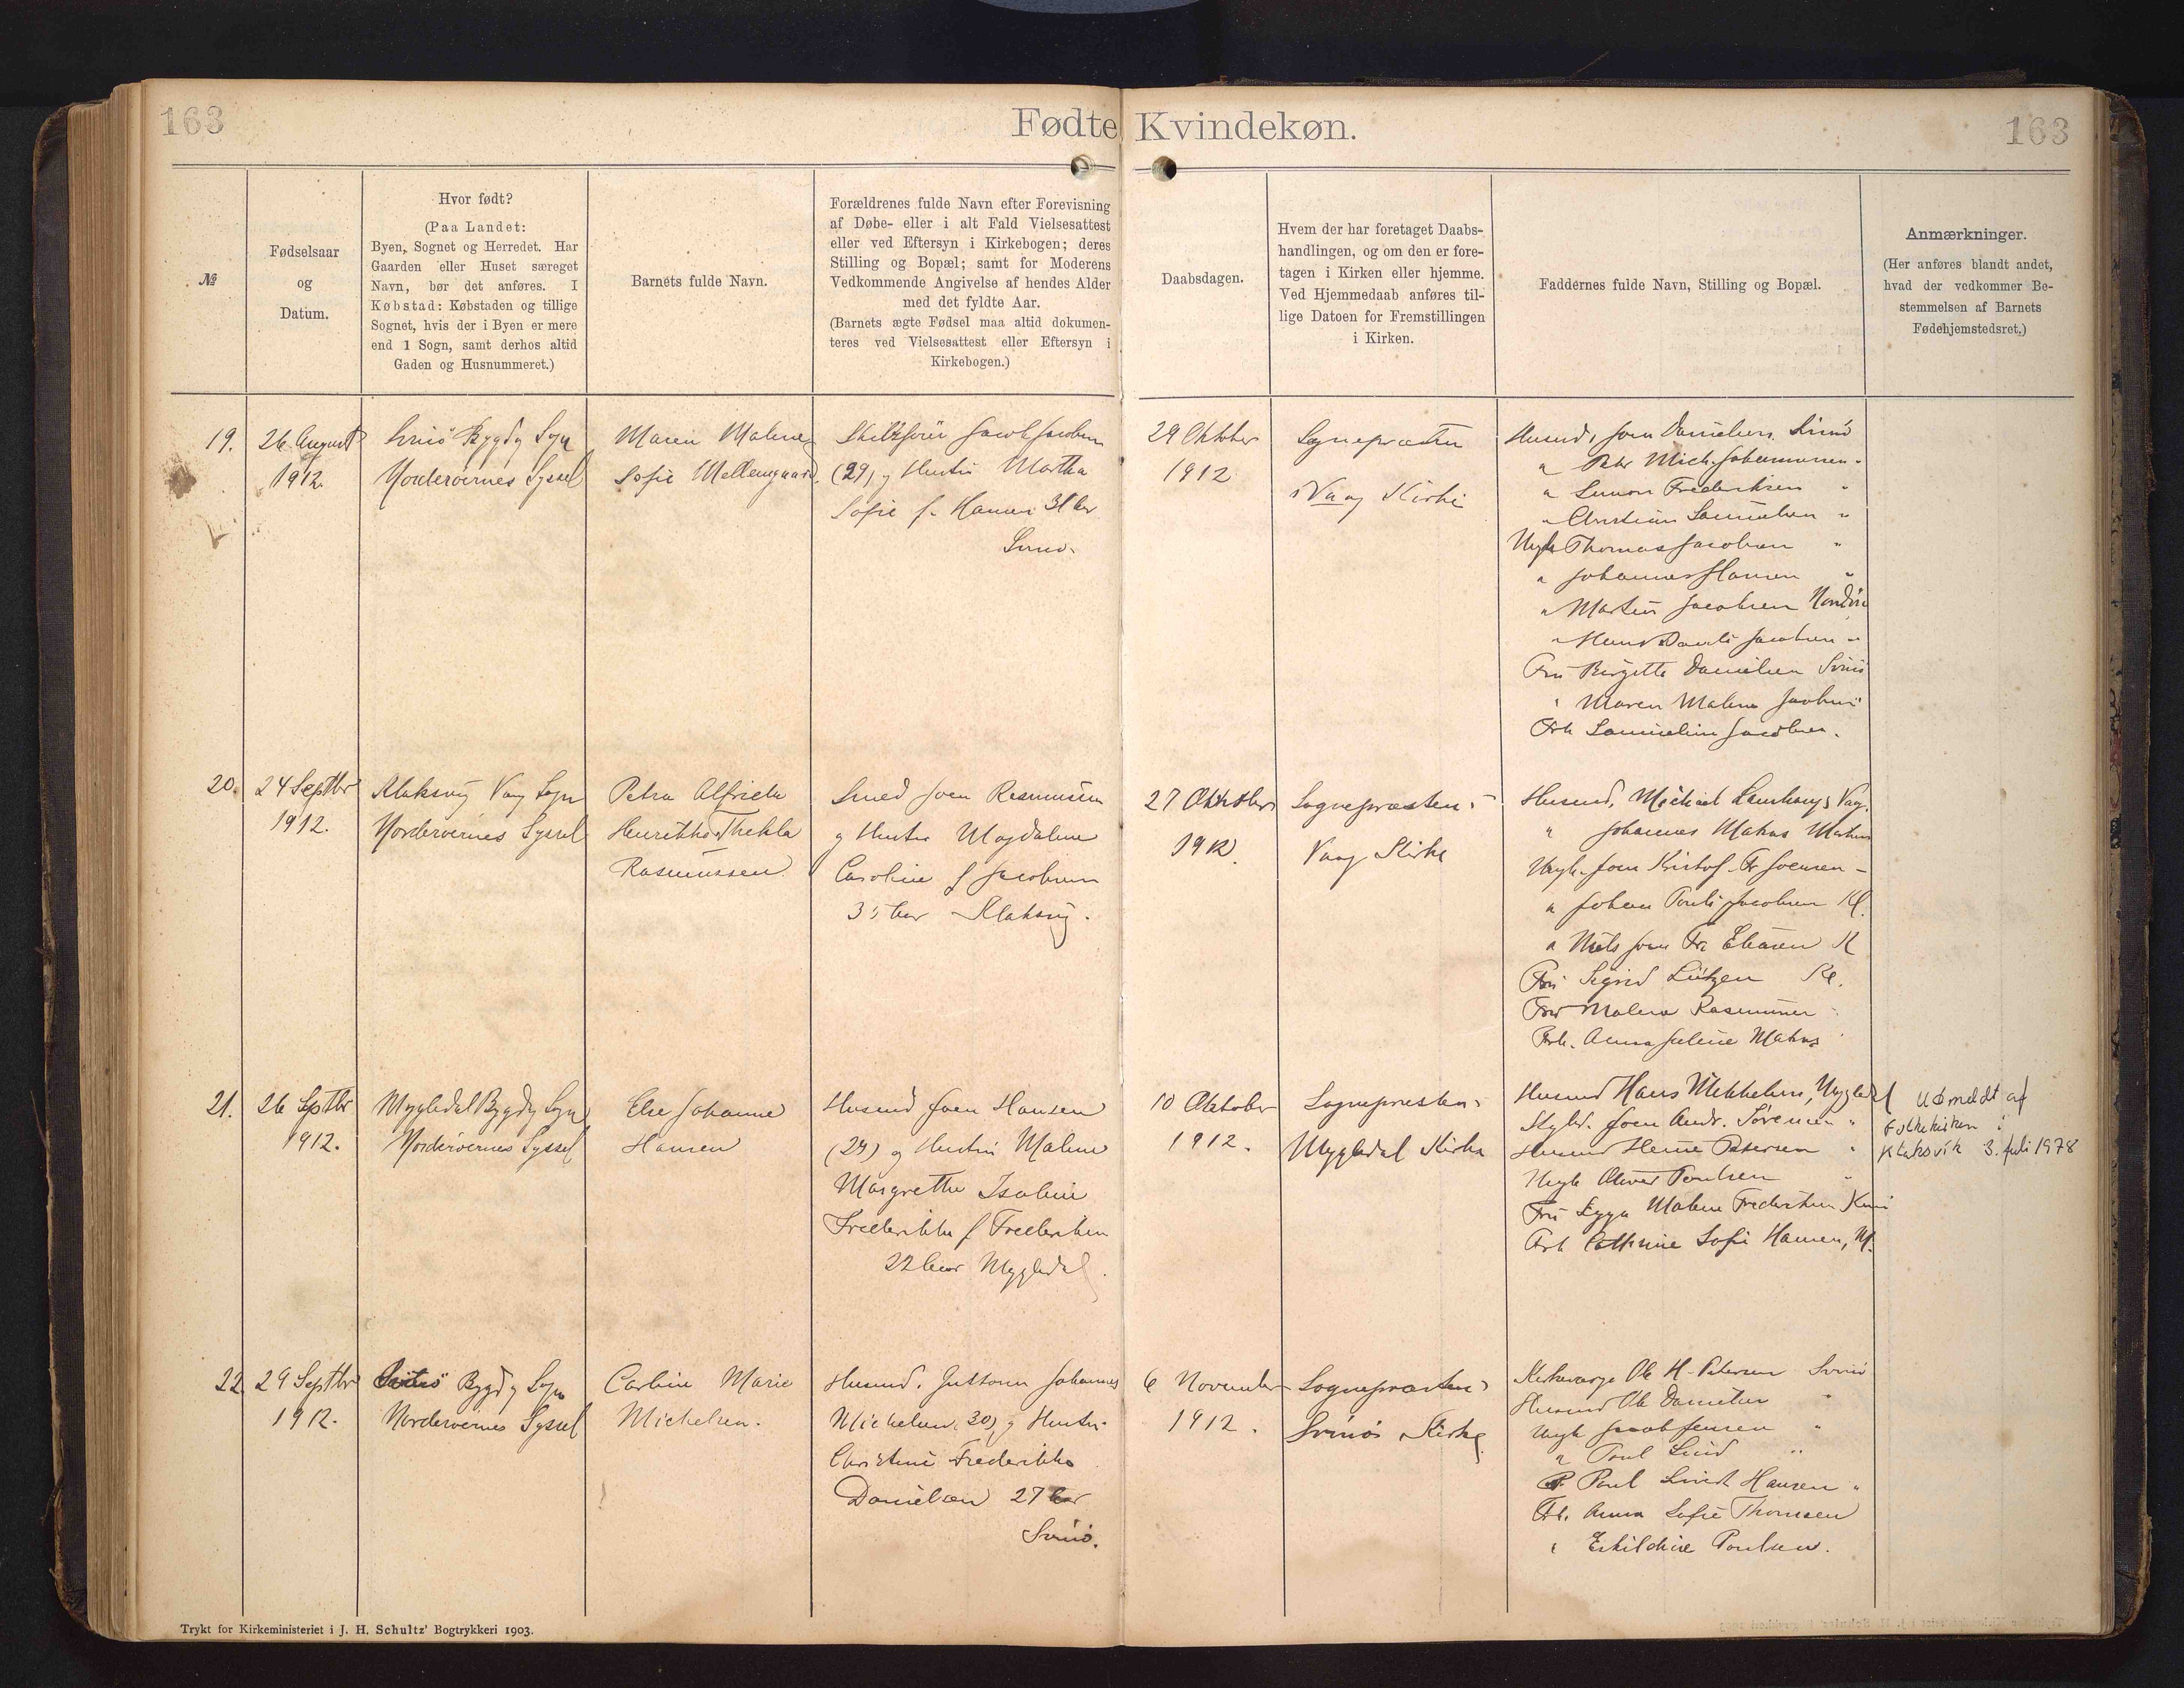 163
Fødte Kvindekøn.
163
№
Fødselsaar
og
Datum.
Hvor født?
(Paa Landet:
Byen, Sognet og Herredet. Har
Gaarden eller Huset særeget
Navn, bør det anføres. I
Købstad: Købstaden og tillige
Sognet, hvis der i Byen er mere
end 1 Sogn, samt derhos altid
Gaden og Husnummeret.)
Barnets fulde Navn.
Forældrenes fulde Navn efter Forevisning
af Døbe- eller i alt Fald Vielsesattest
eller ved Eftersyn i Kirkebogen; deres
Stilling og Bopæl; samt for Moderens
Vedkommende Angivelse af hendes Alder
med det fyldte Aar.
(Barnets ægte Fødsel maa altid dokumen-
teres ved Vielsesattest eller Eftersyn i
Kirkebogen.)
Daabsdagen.
Hvem der har foretaget Daabs-
handlingen, og om den er fore-
tagen i Kirken eller hjemme.
Ved Hjemmedaab anføres til-
lige Datoen for Fremstillingen
i Kirken.
Faddernes fulde Navn, Stilling og Bopæl.
Anmærkninger.
(Her anføres blandt andet,
hvad der vedkommer Be-
stemmelsen af Barnets
Fødehjemstedsret.)
19.
26 August
1912.
Svinö Bygd og Sogn
Norderøernes Syssel
Maren Malene
Sofie Mellemgaard
Jacob Jacobsen
(29) og Hustru Martha
Sofie f. Hansen 31 Aar
Svinö.
29 Oktober
1912
Sognepræsten
i Vaag Kirke
Husmd. Joen Danielsen Svinö
" Petr Mich. Johannesen "
" Simon Frederiksen "
" Christian Samuelsen "
Ungk Thomas Jacobsen "
" Johannes Hansen "
" Martin Jacobsen
" Hans Pauli Jacobsen "
Fru Birgitte Danielsen Svinö
" Maren Malene Jacobsen
Frk Jacobsen.
20.
24 Septbr
1912.
Klaksvig Vaag Sogn
Norderøernes Syssel
Petra Alfrida
Henrikka Thekla
Rasmussen
Smed Joen Rasmussen
og Hustru Magdalene
Caroline f Jacobsen
35 Aar Klaksvig.
27 Oktober
1912.
Sognepræsten i
Vaag Kirke
Husmd. Michael Vaag.
" Johannes Matras
Ungk. Joen Kristof. Fr Joensen
" Johan Pauli Jacobsen Kl.
" Niels Joen Fr Eliasen K
Fru Sigrid Lützen Kl.
Fru Malene Rasmussen
Frk. Anna Matras
21.
26 Septbr
1912.
Mygledal Bygd og Sogn
Norderøernes Syssel
Else Johanne
Hansen
Husmd Joen Hansen
(29) og Hustru Malene
Margrethe Isaline
Frederikke f Frederiksen
22 Aar Mygledal.
10 Oktober
1912.
Sognepræsten i
Mygledal Kirke
Husmd Hans Mikkelsen, Mygledal
Joen Andr. Sörensen "
Husmd Heine Petersen "
Ungk Oliver Poulsen "
Fru Malene Frederiksen
Frk Cathrine Sofie Hansen, M.
Udmeldt af
Folkekirken i
Klaksvik 3. juli 1978
22.
29 Septbr
1912.
Svinö Bygd og Sogn
Norderøernes Syssel
Carline Marie
Michelsen.
Husmd. Guttorm Johannes
Michelsen, 30, og Hustru
Christine Frederikke
Danielsen 27 Aar
Svinö.
6 November
1912.
Sognepræsten i
Svinös Kirke
Kirkeværge Ole H. Petersen Svinö
Husmd Ole Danielsen "
Ungk Jacob Jensen "
" Poul Lind "
Poul Hansen "
Frk. Anna Sofie Thomsen
" Eskildine Poulsen.
Trykt for Kirkeministeriet i J. H. Schultz' Bogtrykkeri 1903.